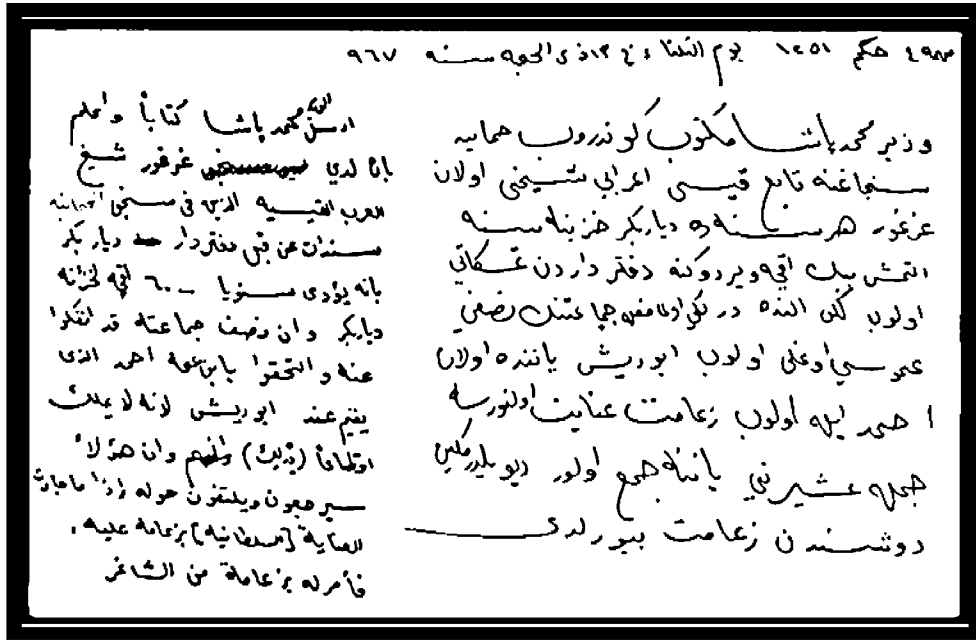 حكم ١٢٥١ يوم الثلثاء في ١٣ ذى الحجه سنه ٩٦٧
وزير محمد پاشا مكتوب كوندروب حمايه
سنجاغنه تابع قيسى اعرابى شيخى اولان
غرغور هر سنه ده دياربكر خزينه سنه
التمش بيك اقچه ويردوكنه دفتر داردن تمسكاتى
اولوب لكن النده جماعتنك نصفى
عموسى اوغلى اولوب ابوريش ياننده اولان
احمد ايله اولوب زعامت عنايت اولنورسه
جمله عشيرتى ياننه جمع اولور ديو بلدرمكين
دوشندن زعامت بيورلدى
ارسل محمد پاشا كتاباً واعلم
بان لدي غرغور شيخ
العرب القيسيه الذين في سنجق الحمايه
سندات من قبل دفتردار دياربكر
بانه يؤدى سنويا ٦٠٠٠٠ اقچه لخزانة
دياربكر وان نصف جماعته قد انفكوا
عنه والتحقوا بابن عمه احمد الذى
يقيم عند ابوريش لانه لا يملك
وان هؤلاء
سيرجعون ويلتفون حوله اذا ما جادت
العناية [السلطانية] بزعامة عليه،
فأمر له بزعامة من الشاغر